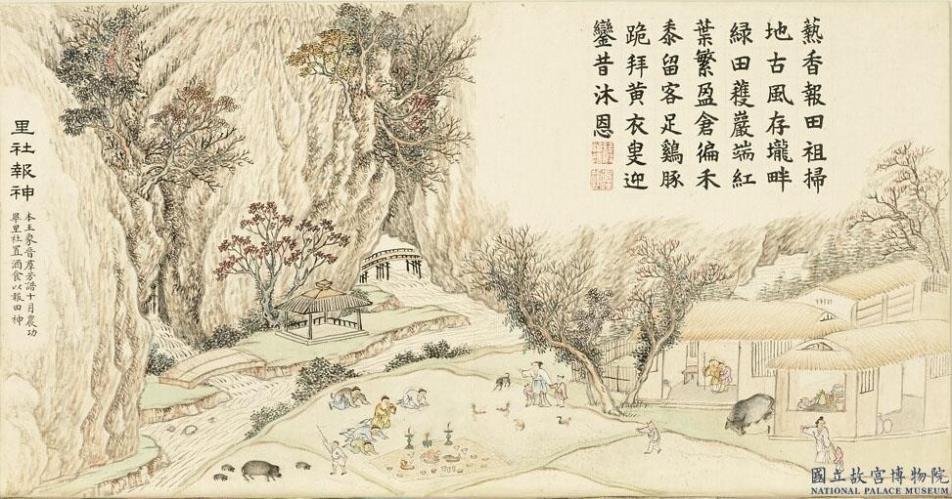 爇香報田祖掃
地古風存壠畔
緑田穫巖端紅
葉繁盈倉徧禾
黍留客足鷄豚
跪拜黃衣叟迎
鑾昔沐恩
里社報神
本王象晉羣芳譜十月農功
畢里社置酒食以報田神
國立故宮博物院
NATIONAL PALACE MUSEUM